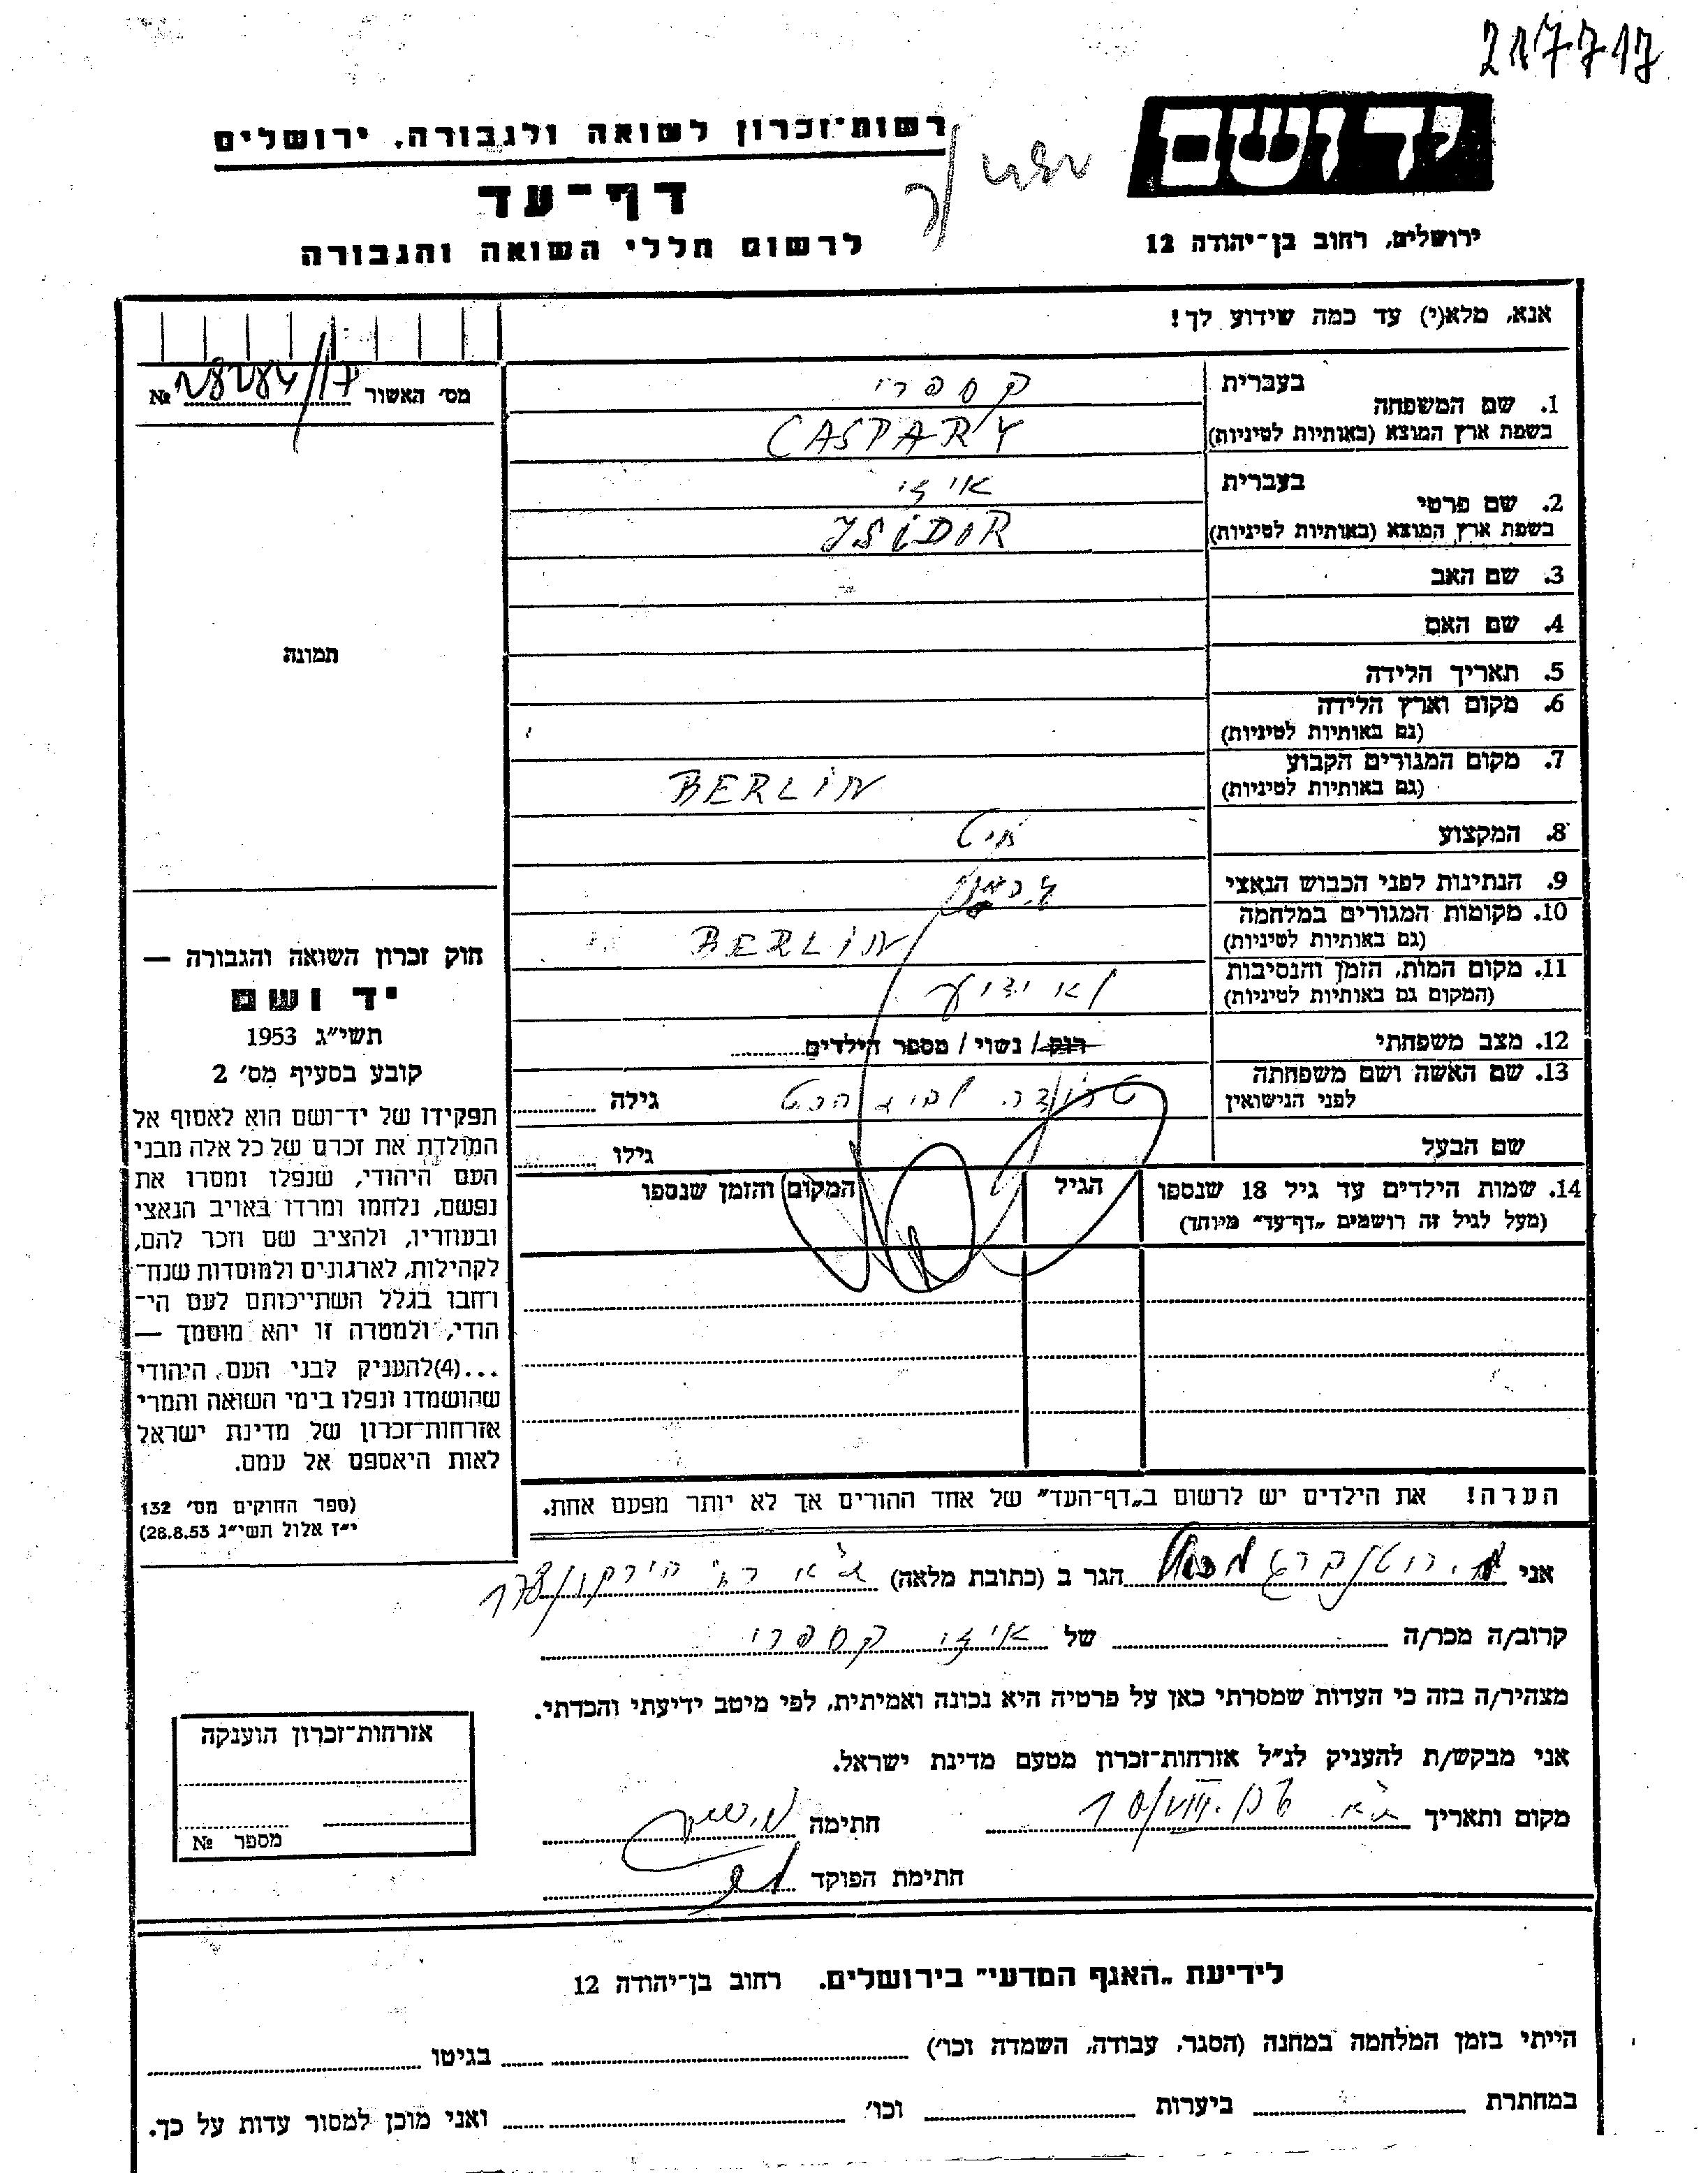 217717
יד ושם
רשות־זכרון לשואה ולגבורה, ירושלים
דף־עד
לרשום חללי השואה והגבורה
ירושלים, רחוב בן־יהודה 12
אנא, מלא(י) עד כמה שידוע לך!
מס׳ האשור №
בעברית קספרי
1. שם המשפחה
בשפת ארץ המוצא (באותיות לטיניות) CASPARY
בעברית איזי
2. שם פרטי
בשפת ארץ המוצא (באותיות לטיניות) YSIDOR
3. שם האב
4. שם האם
תמונה
5. תאריך הלידה
6. מקום וארץ הלידה
(גם באותיות לטיניות)
7. מקום המגורים הקבוע BERLIN
(גם באותיות לטיניות)
8. המקצוע חיט
9. הנתינות לפני הכבוש הנאצי
10. מקומות המגורים במלחמה BERLIN
(גם באותיות לטיניות)
11. מקום המות, הזמן והנסיבות לא ידוע
(המקום גם באותיות לטיניות)
12. מצב משפחתי רוק / נשוי / מספר הילדים
13. שם האשה ושם משפחתה
לפני הנישואין גילה
שם הבעל גילו
14. שמות הילדים עד גיל 18 שנספו הגיל המקום והזמן שנספו
(מעל לגיל זה רושמים „דף־עד״ מיוחד)
חוק זכרון השואה והגבורה —
יד ושם
תשי״ג 1953
קובע בסעיף מס׳ 2
תפקידו של יד־ושם הוא לאסוף אל
המולדת את זכרם של כל אלה מבני
העם היהודי, שנפלו ומסרו את
נפשם, נלחמו ומרדו באויב הנאצי
ובעוזריו, ולהציב שם וזכר להם,
לקהילות, לארגונים ולמוסדות שנח־
רחבו בגלל השתייכותם לעם הי־
הודי, ולמטרה זו יהא מוסמך —
...(4)להעניק לבני העם היהודי
שהושמדו ונפלו בימי השואה והמרי
אזרחות־זכרון של מדינת ישראל
לאות היאספם אל עמם.
(ספר החוקים מס׳ 132
י״ז אלול תשי״ג 28.8.53)
הערה! את הילדים יש לרשום ב„דף־העד״ של אחד ההורים אך לא יותר מפעם אחת.
אני רוטנברג הגר ב (כתובת מלאה) ת״א רח׳ הירקון
קרוב/ה מכר/ה של איזי קספרי
מצהיר/ה בזה כי העדות שמסרתי כאן על פרטיה היא נכונה ואמיתית, לפי מיטב ידיעתי והכרתי.
אני מבקש/ת להעניק לנ״ל אזרחות־זכרון מטעם מדינת ישראל.
מקום ותאריך ת״א חתימה
חתימת הפוקד
אזרחות־זכרון הוענקה
מספר №
לידיעת „האגף המדעי״ בירושלים. רחוב בן־יהודה 12
הייתי בזמן המלחמה במחנה (הסגר, עבודה, השמדה וכו׳) בגיטו
במחתרת ביערות וכו׳ ואני מוכן למסור עדות על כך.